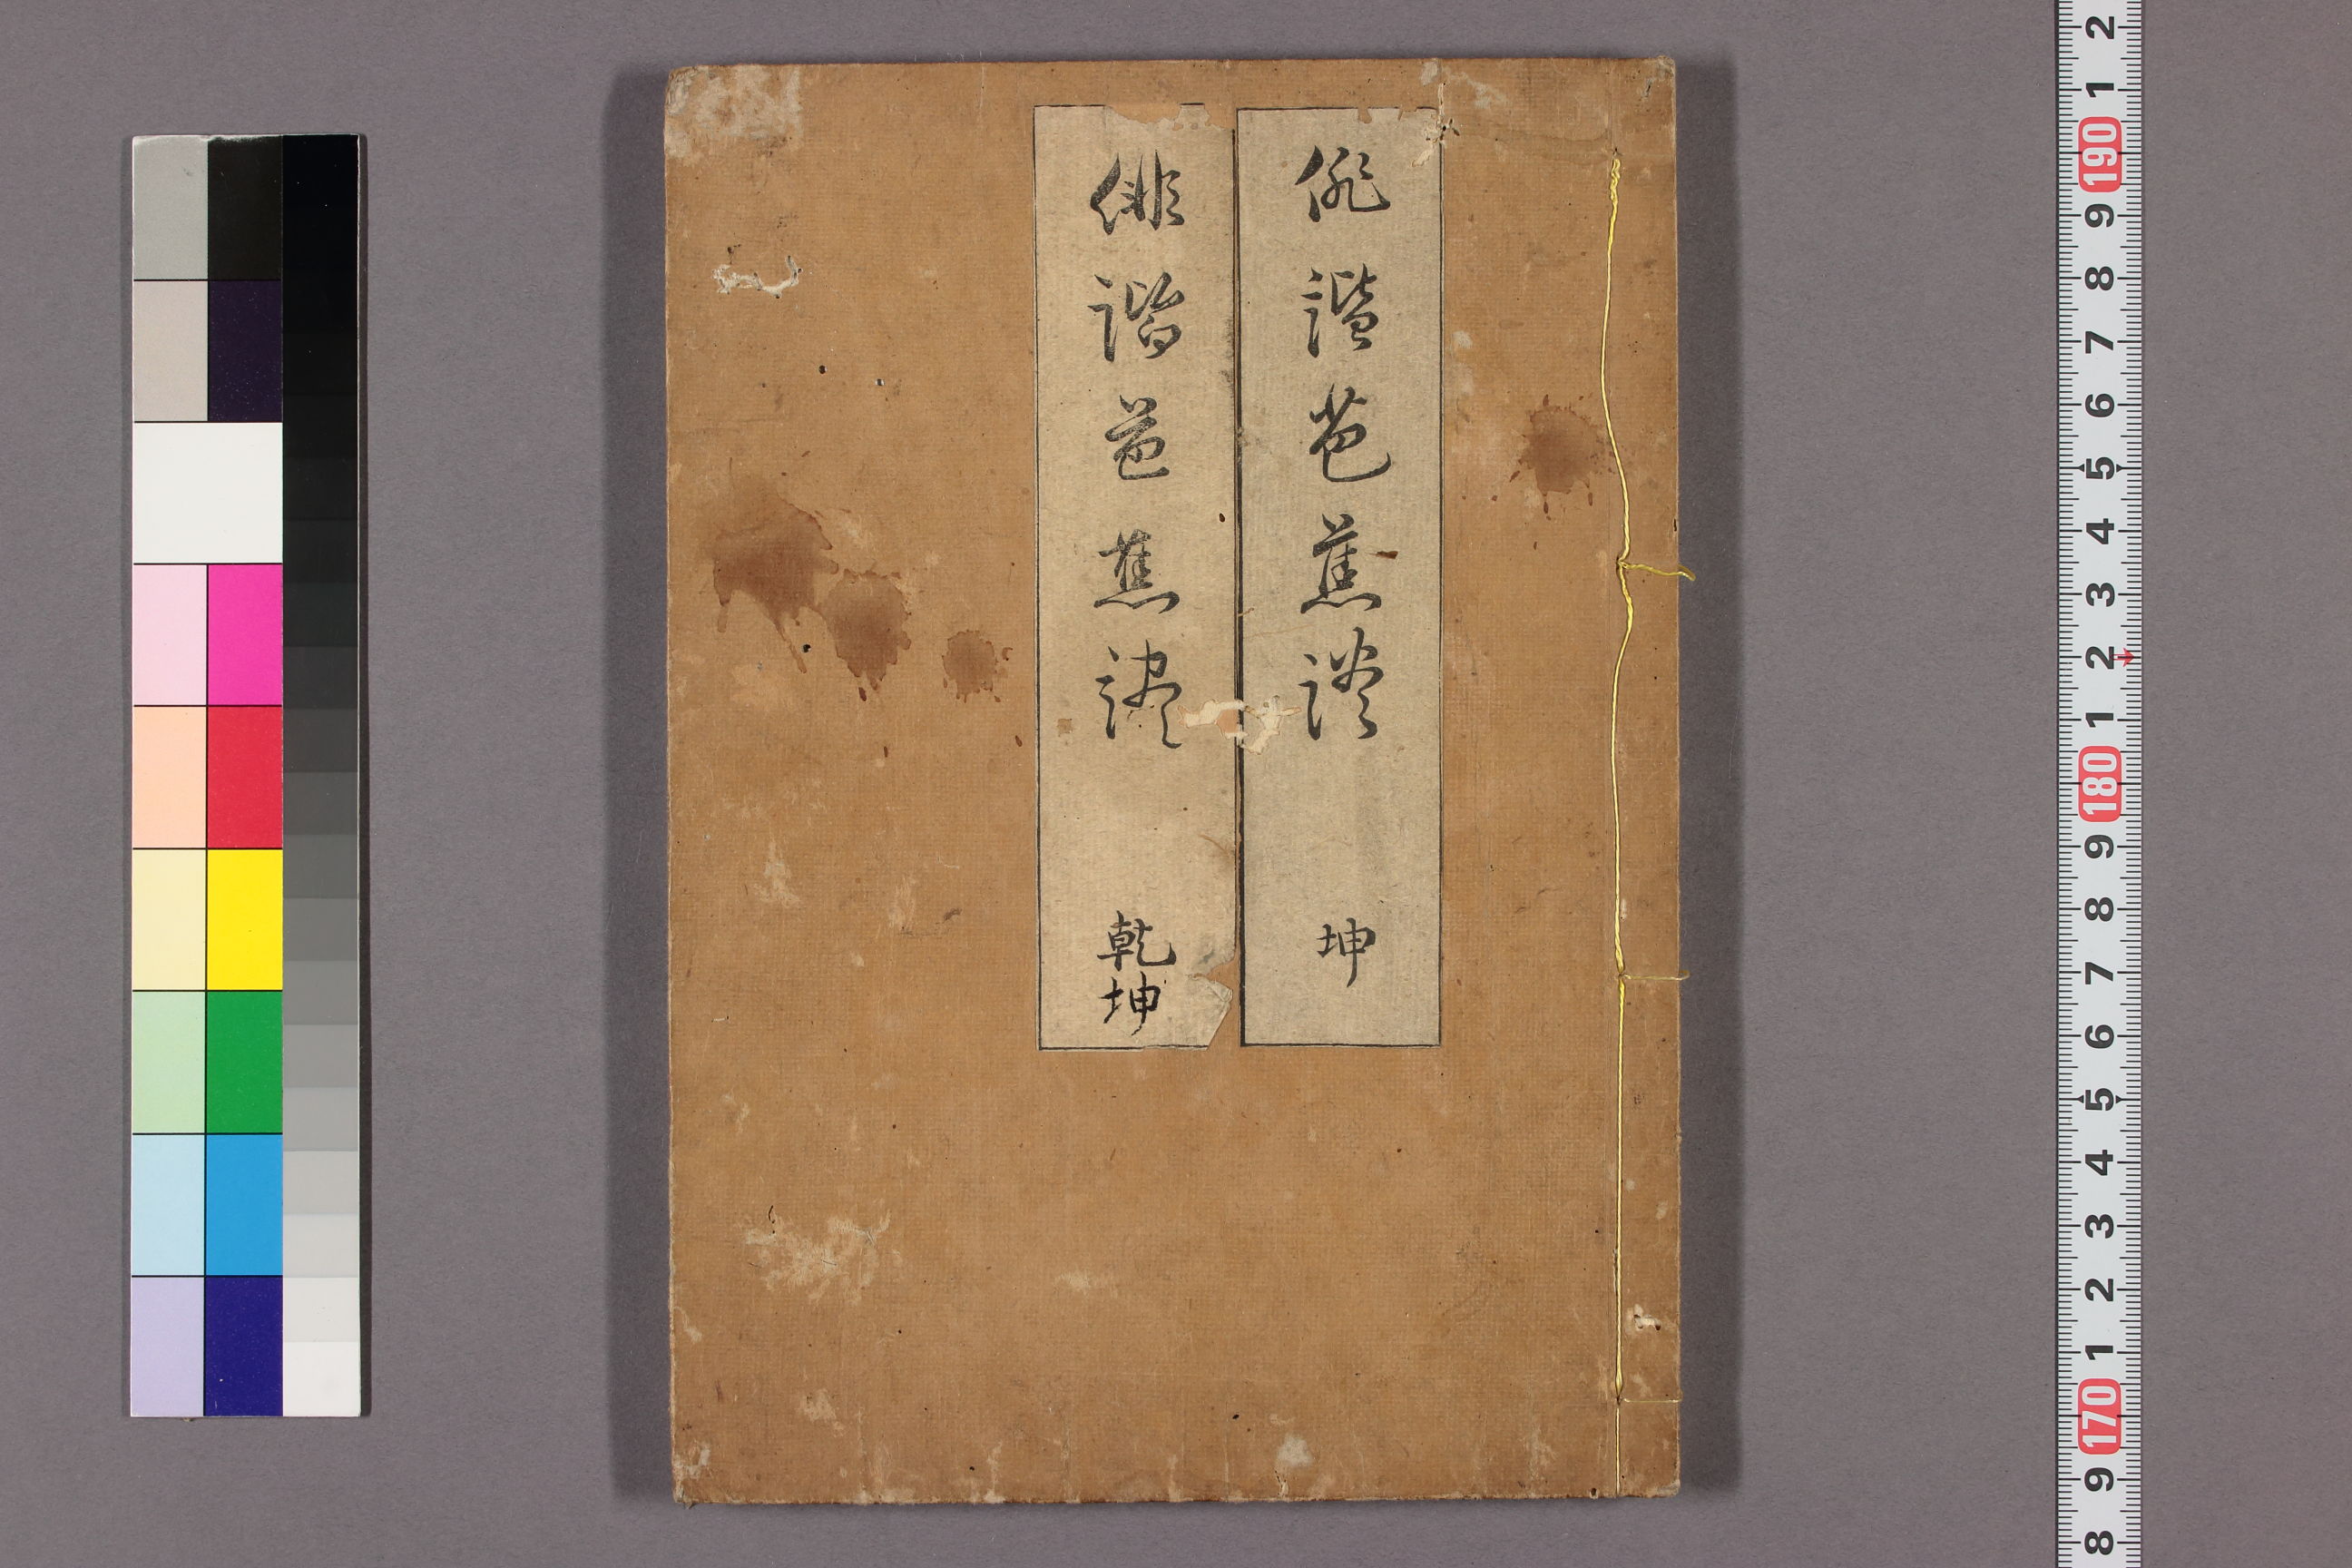 俳諧芭蕉談 坤
俳諧芭蕉談 乾坤
2 1 190 9 8 7 6 5 4 3 2 1 180 9 8 7 6 5 4 3 2 1 170 9 8